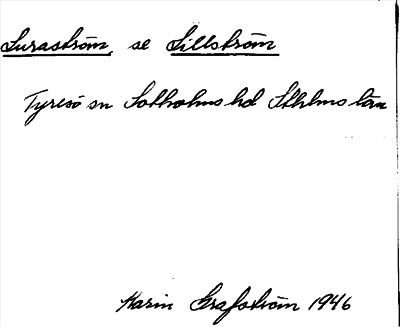 Suraström, se Sillström
Tyresö sn Sotholms hd Sthlms län
Karin Grafström 1946